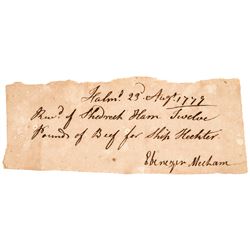 Falmo 23d Augt. 1779
Recd. of Shedrech Ham Twelve
Pounds of Beef for Ship Hechter
Ebenezer Mecham